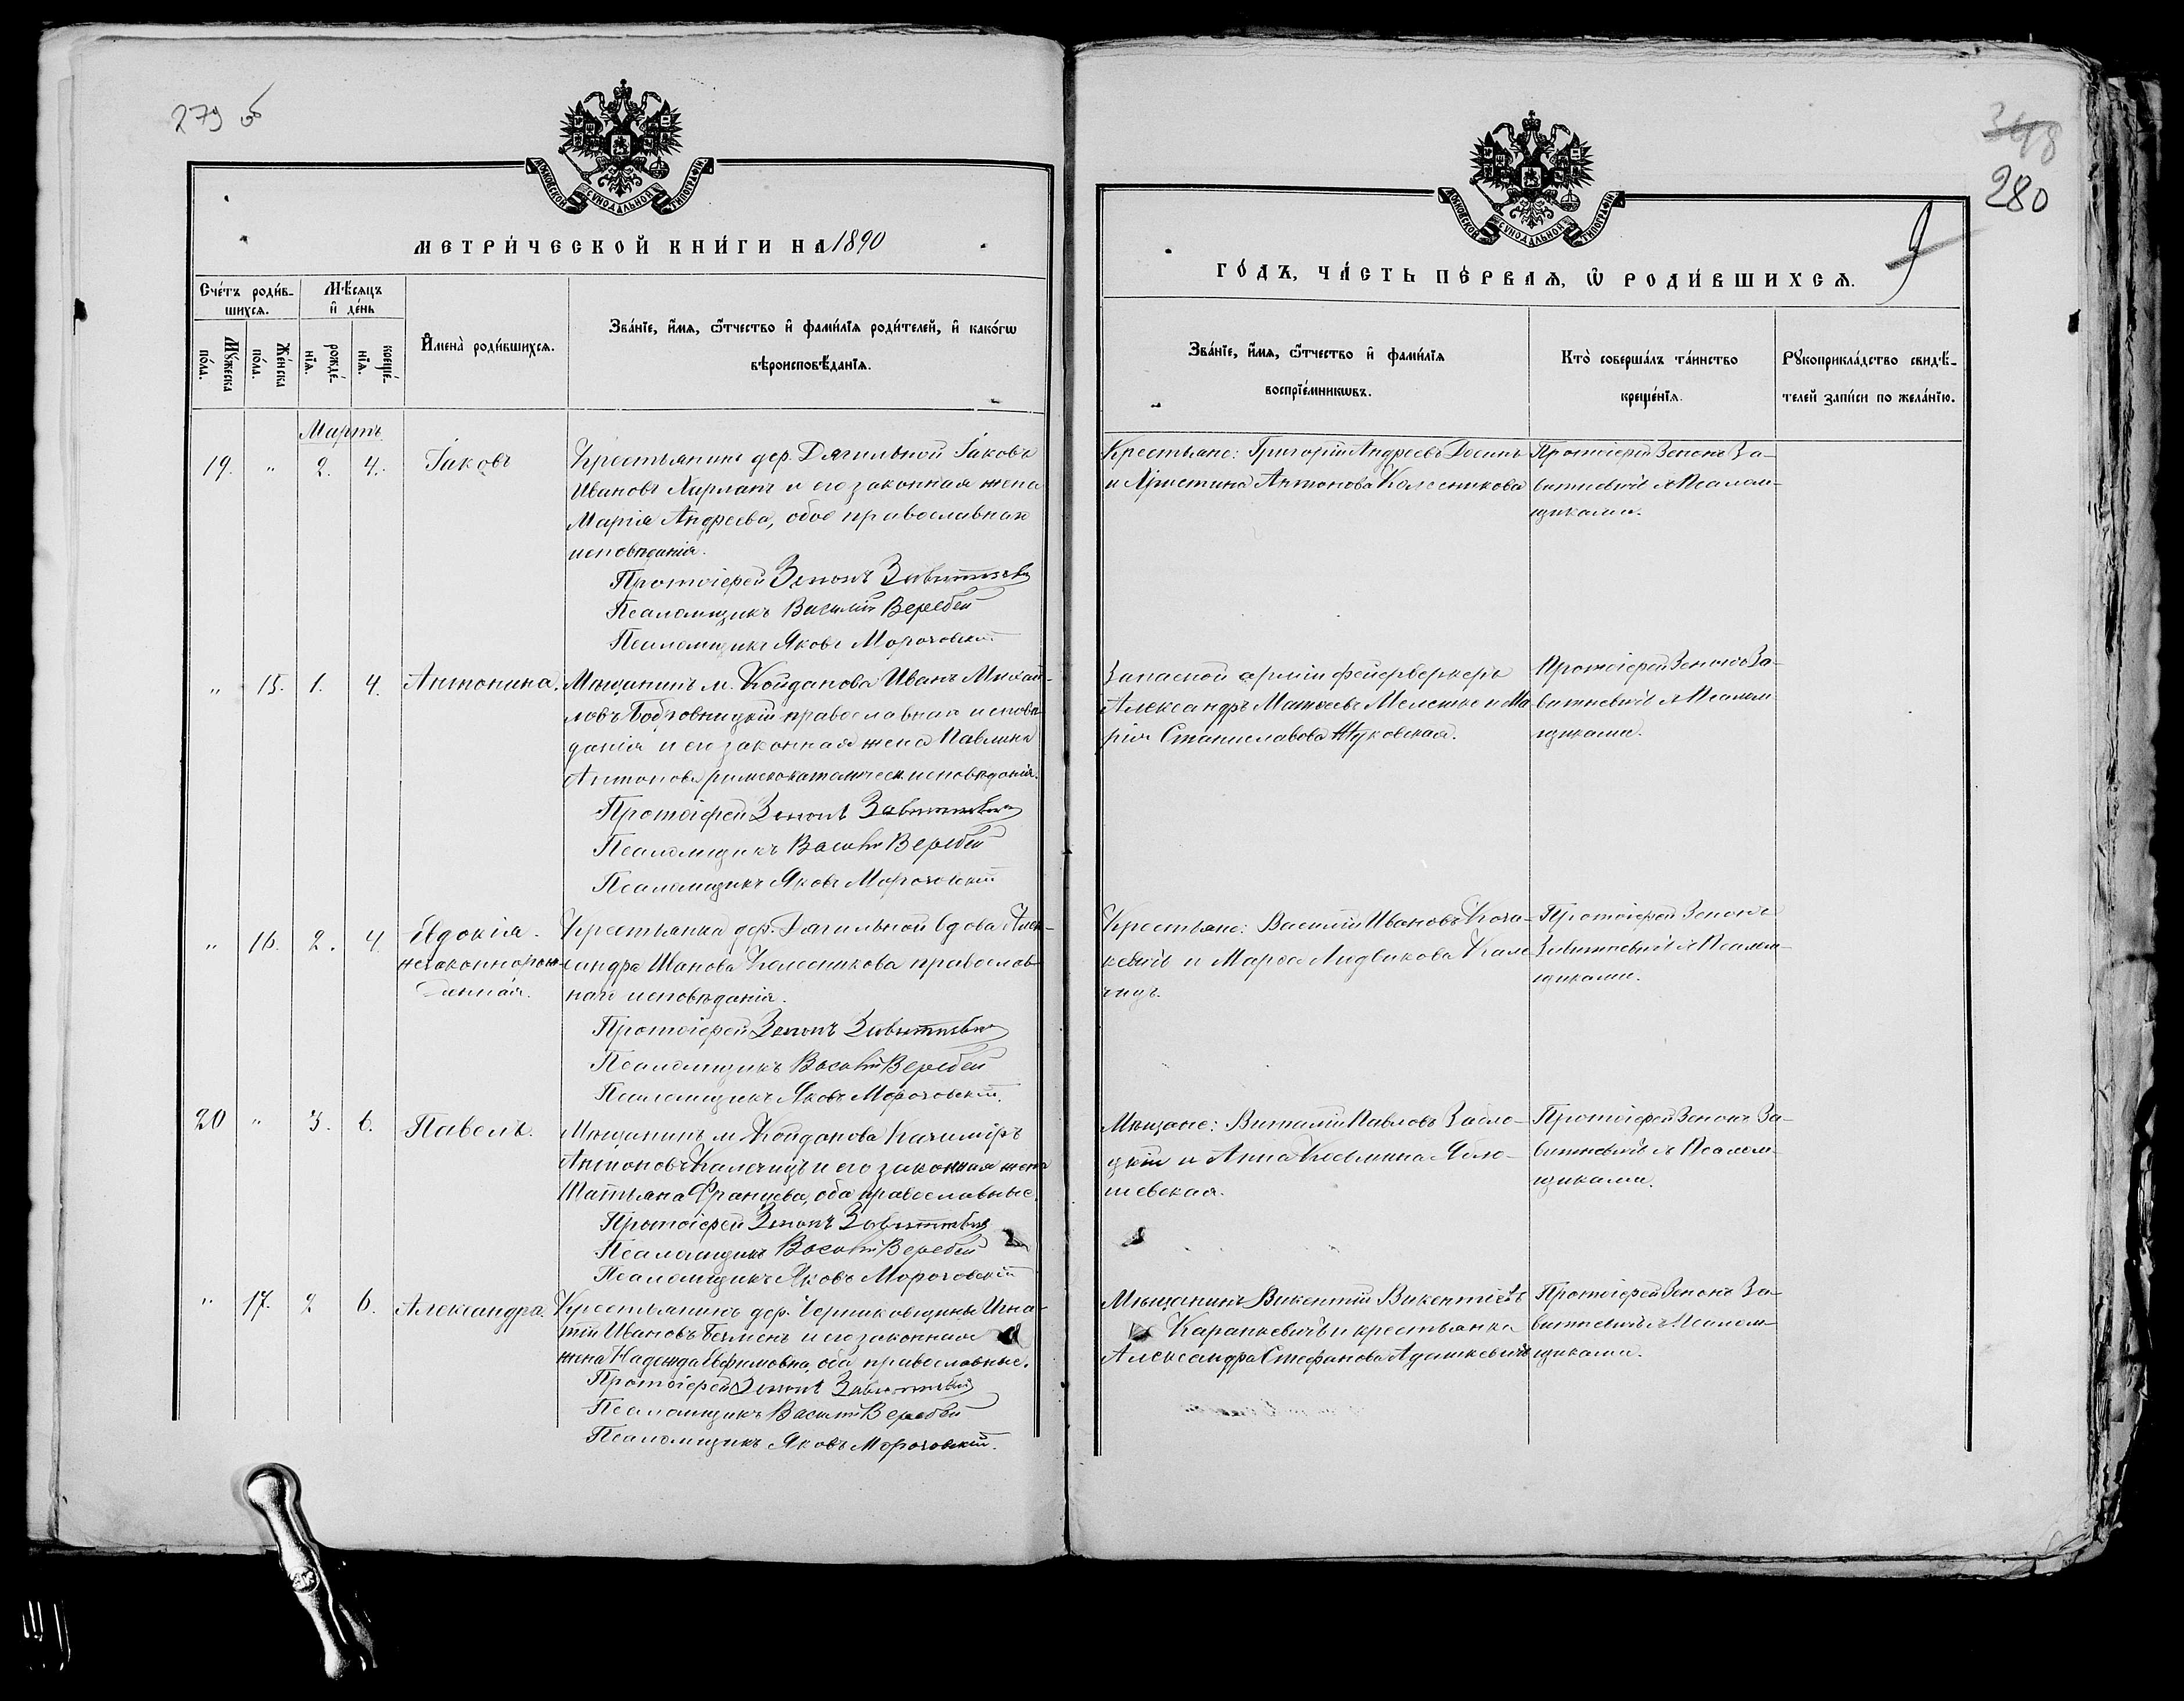 279 об
МОСКОВСКОЙ СѴНОДАЛЬНОЙ ТИПОГРАФІИ
МЕТРИ́ЧЕСКОЙ КНИ́ГИ НА 1890
Сче́тъ роди́в-
шихсѧ.
Мѣ́сѧцъ
и҆ де́нь
И҆мена̀ роди́вшихсѧ.
Зва́нїе, и҆́мѧ, ѻ҆́тчество и҆ фами́лїѧ роди́телей, и҆ како́гѡ
вѣроисповѣ́данїѧ.
Мꙋ́жеска
по́ла.
Же́нска
по́ла.
рожде́-
нїѧ.
креще́-
нїѧ.
Мартъ
19. " 2. 4. Іаковъ
Крестьянинъ дер. Дягильной Іаковъ
Ивановъ Харланъ и его законная жена
Марія Андреева, обое православнаго
исповѣданія.
Протоіерей Зенонъ
Псаломщикъ Василій Веребей
Псаломщикъ Яковъ Морозовскій
" 15. 1. 4. Антонина.
Мѣщанинъ м. Койданова Иванъ Михай-
ловъ православнаго исповѣ-
данія и его законная жена Павлина
Антонова римскокатолическ. исповѣданія.
Протоіерей Зенонъ
Псаломщикъ Василій Веребей
Псаломщикъ Яковъ Морозовскій
" 16. 2. 4 Евдокія -
незаконнорож-
денная.
Крестьянка дер. Дягильной вдова Алек-
сандра Иванова Колесникова православ-
наго исповѣданія.
Протоіерей Зенонъ
Псаломщикъ Василій Веребей
Псаломщикъ Яковъ Морозовскій.
20 " 3. 6. Павелъ.
Мѣщанинъ м. Койданова Казиміръ
Антоновъ Калечицъ и его законная жена
Татьяна Францева, оба православные.
Протоіерей Зенонъ
Псаломщикъ Василій Веребей
Псаломщикъ Яковъ Морозовскій
" 17. 2 6. Александра.
Крестьянинъ дер. Черниковщины Игна-
тій Ивановъ и его законная
жена Надежда Ефимовна, оба православные.
Протоіерей Зенонъ
Псаломщикъ Василій Веребей
Псаломщикъ Яковъ Морозовскій.
348
280
9
МОСКОВСКОЙ СѴНОДАЛЬНОЙ ТИПОГРАФІИ
ГО́ДЪ, ЧА́СТЬ ПЕ́РВАѦ, Ѽ РОДИ́ВШИХСѦ.
Зва́нїе, и҆́мѧ, ѻ҆́тчество и҆ фами́лїѧ
воспрїе́мникѡвъ.
Кто̀ соверша́лъ та́инство
креще́нїѧ.
Рꙋкоприкла́дство свидѣ́-
телей за́писи по жела́нїю.
Крестьяне: Григорій Андреевъ
и Христина Антонова Колесникова
Протоіерей Зенонъ За-
витневичъ съ Псалом-
щиками.
Запасной арміи фейерверкеръ
Александръ Матвеевъ и Ма-
рія Станиславова Жуковская.
Протоіерей Зенонъ За-
витневичъ съ Псалом-
щиками.
Крестьяне: Василій Ивановъ
и Марѳа Людвикова Кале-
чицъ.
Протоіерей Зенонъ
Завитневичъ съ Псалом-
щиками.
Мѣщане: Виталій Павловъ Забло-
цкій и Анна
Протоіерей Зенонъ За-
витневичъ съ Псалом-
щиками.
Мѣщанинъ Викентій Викентіевъ
Каранкевичъ и крестьянка
Александра Стефанова Адашкевичъ
Протоіерей Зенонъ За-
витневичъ съ Псалом-
щиками.